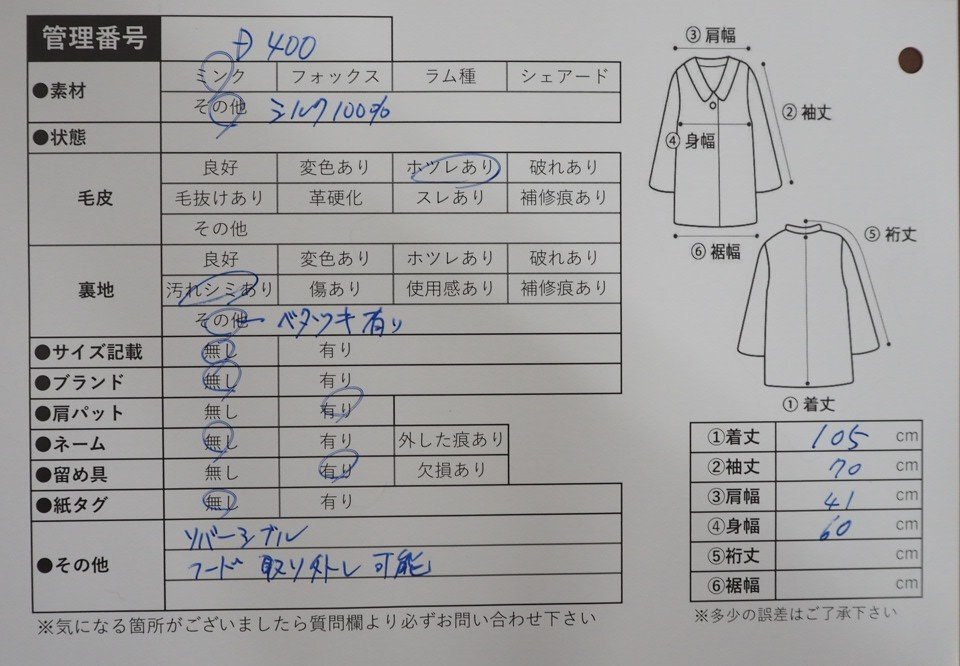 管理番号 D400
●素材 ミンク フォックス ラム種 シェアード
その他 シルク100%
●状態
毛皮 良好 変色あり ホツレあり 破れあり
毛抜けあり 革硬化 スレあり 補修痕あり
その他
裏地 良好 変色あり ホツレあり 破れあり
汚れシミあり 傷あり 使用感あり 補修痕あり
その他 ベタツキ有り
●サイズ記載 無し 有り
●ブランド 無し 有り
●肩パット 無し 有り
●ネーム 無し 有り 外した痕あり
●留め具 無し 有り 欠損あり
●紙タグ 無し 有り
●その他 リバーシブル
フード 取り外し可能
※気になる箇所がございましたら質問欄より必ずお問い合わせ下さい
③肩幅
②袖丈
④身幅
⑥裾幅
⑤裄丈
①着丈
①着丈 105 cm
②袖丈 70 cm
③肩幅 41 cm
④身幅 60 cm
⑤裄丈 cm
⑥裾幅 cm
※多少の誤差はご了承下さい